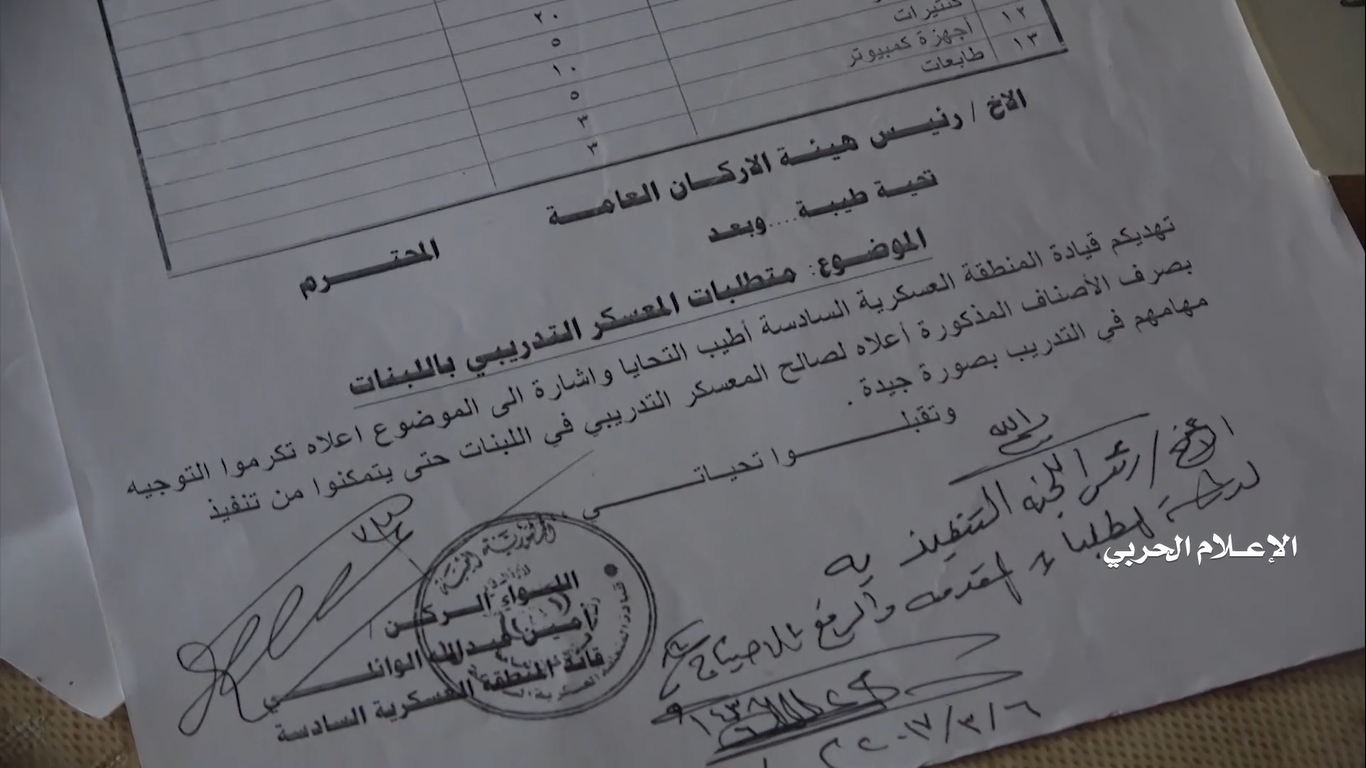 ٢٠
٥
١٢ كنتيرات ١٠
١٣ اجهزة كمبيوتر ٥
طابعات ٣
٣
الاخ / رئيس هيئة الاركان العامة المحترم
تحية طيبة....وبعد
الموضوع: متطلبات المعسكر التدريبي باللبنات
تهديكم قيادة المنطقة العسكرية السادسة أطيب التحايا واشارة الى الموضوع اعلاه تكرموا التوجيه
بصرف الأصناف المذكورة أعلاه لصالح المعسكر التدريبي في اللبنات حتى يتمكنوا من تنفيذ
مهامهم في التدريب بصورة جيدة .
وتقبلوا تحياتي ،
اللواء الركن
أمين عبدالله الوائلي
قائد المنطقة العسكرية السادسة
الجمهورية اليمنية
الأخ / رئيس اللجنة التنفيذية
المقدمة والرفع بالاحتياج
٢٠١٧/٣/٦
الإعلام الحربي